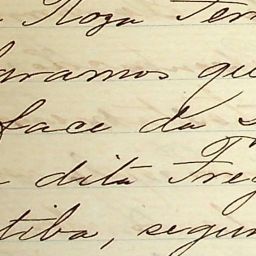 Roza Ter
aramos que
face da S
dita Freg
tiba, segun